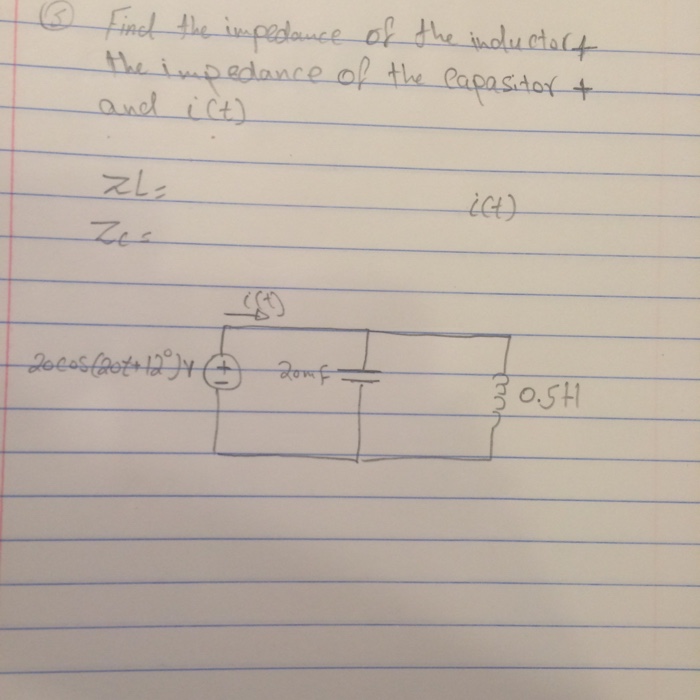 5 Find the impedance of the inductor +
the impedance of the Capasitor +
and i(t)
ZL=
i(t)
Zc=
i(t)
20cos(20t+12°)V
+
-
20mF
0.5H